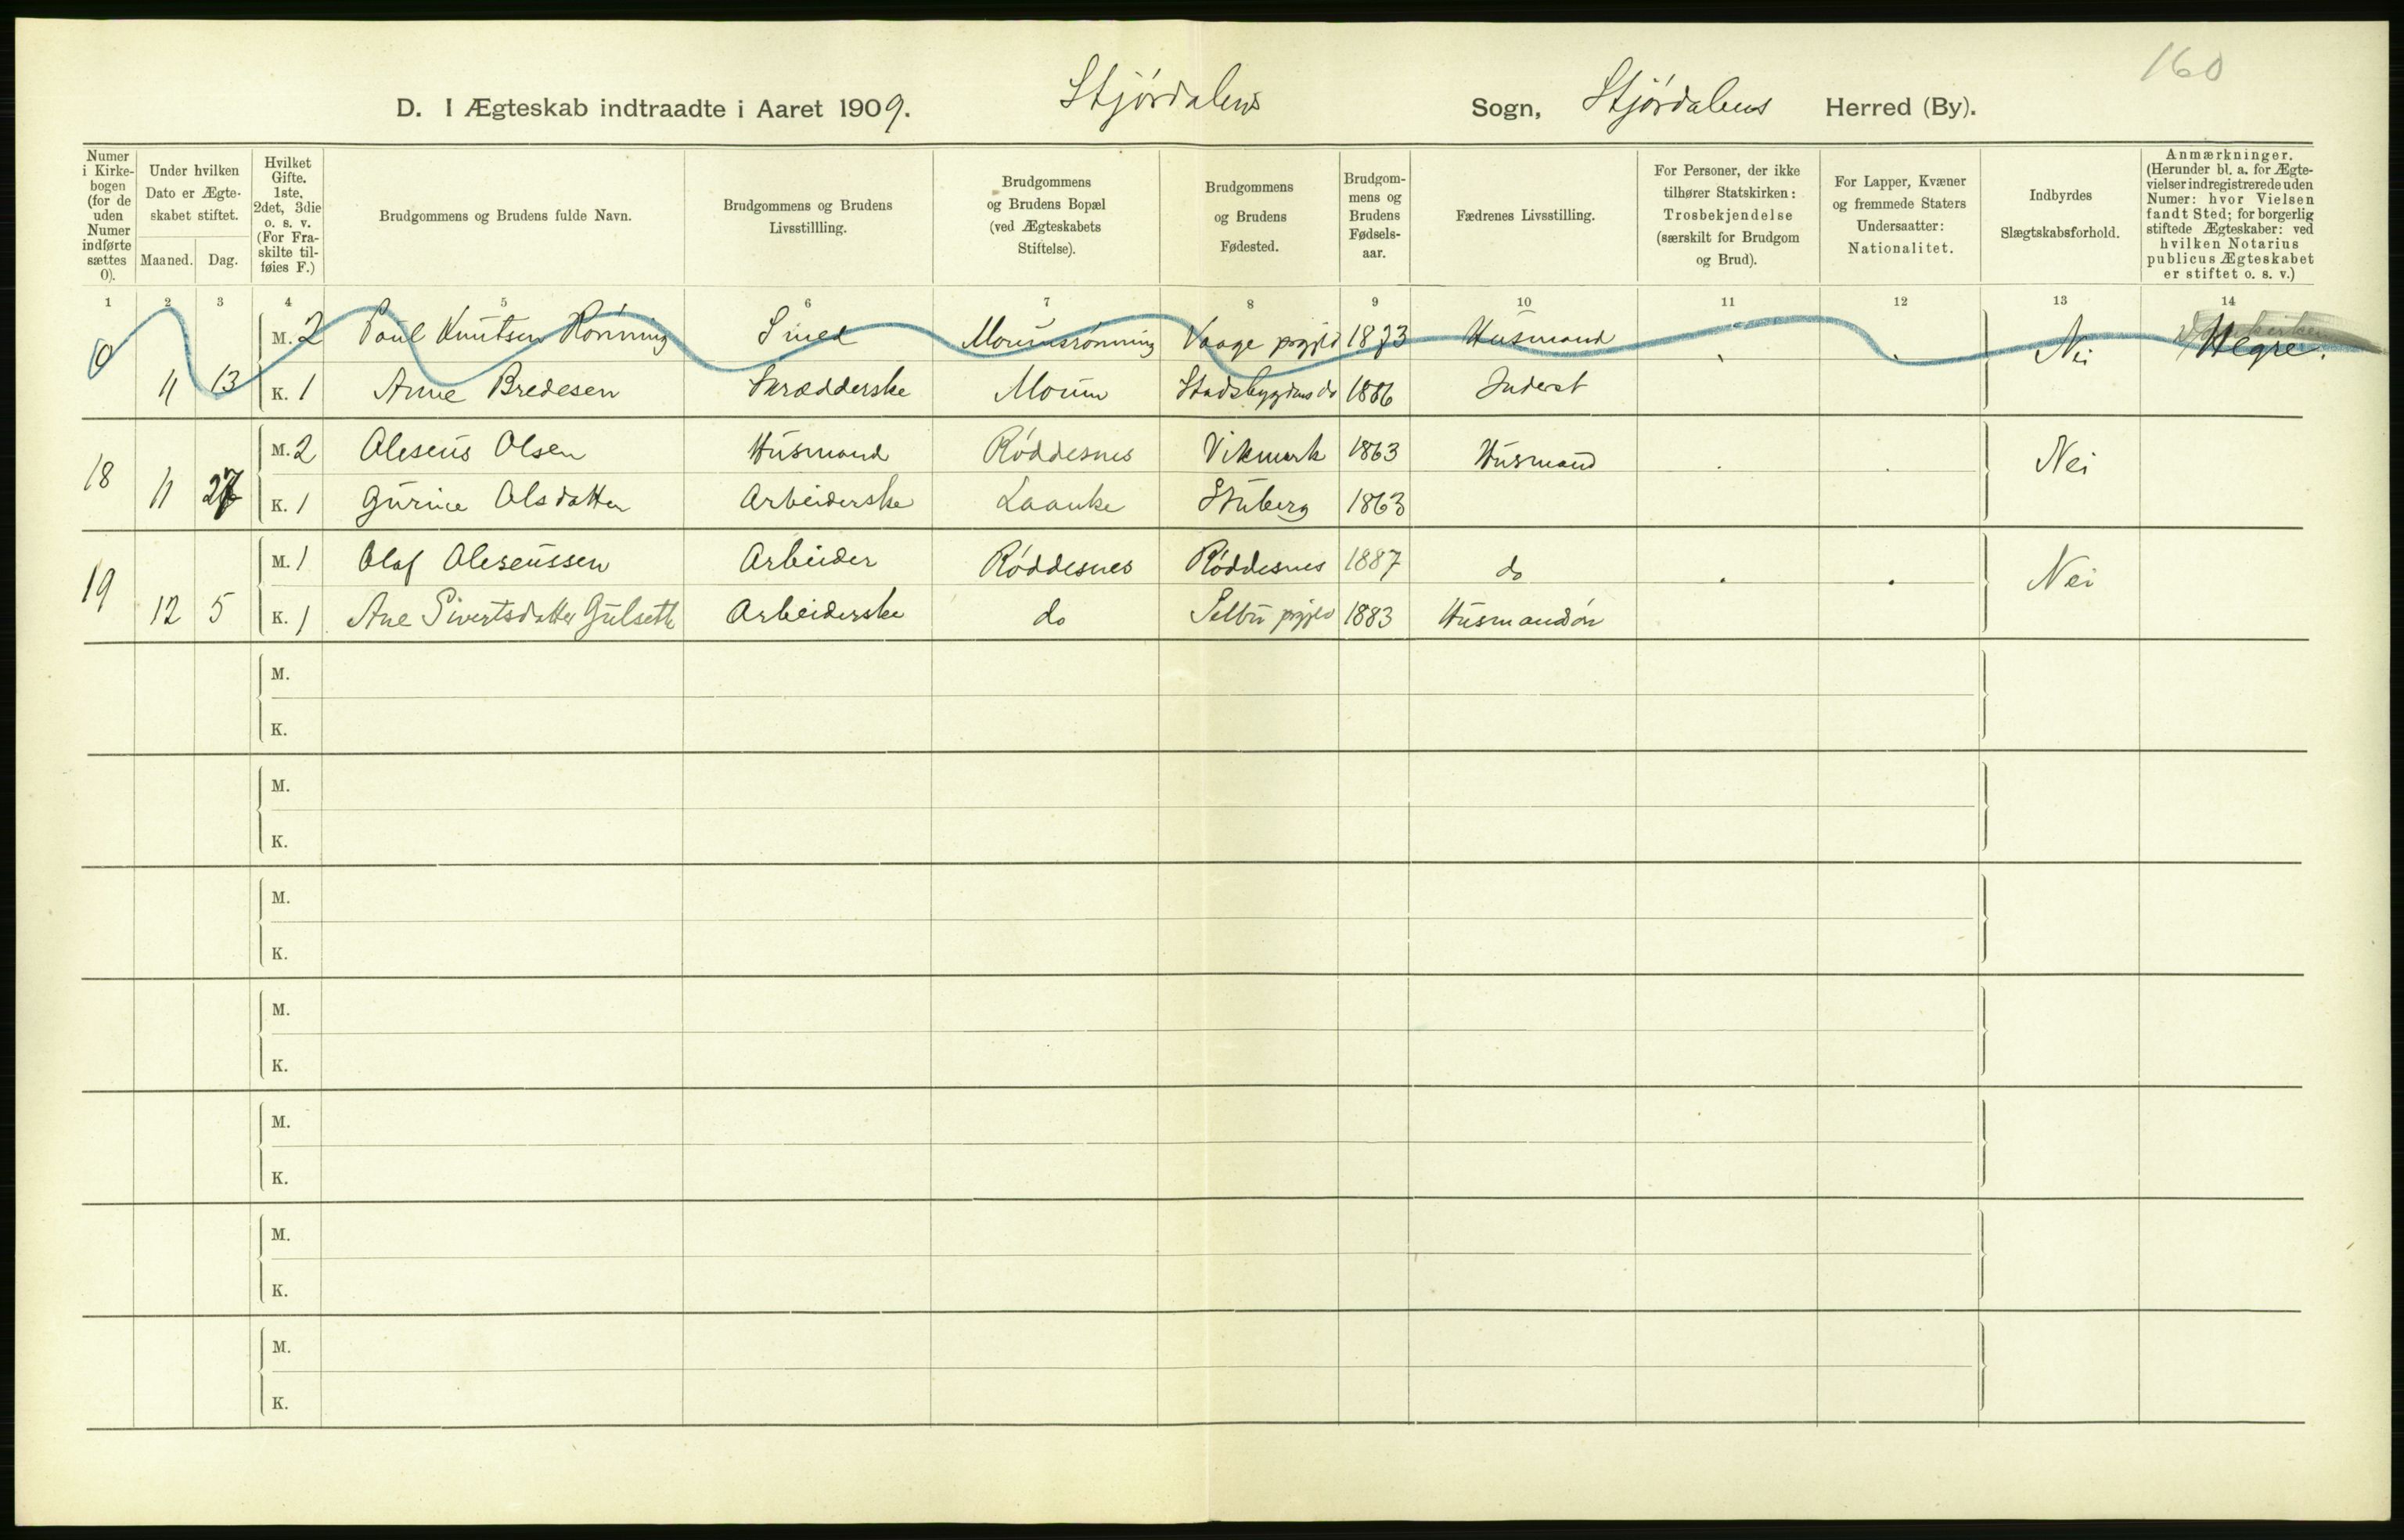 160
D. I Ægteskab indtraadte i Aaret 1909. Stjórdalens Sogn, Stjórdalens Herred (By).
Numer i Kirkebogen (for de uden Numer indførte sættes 0).
Under hvilken Dato er Ægteskabet stiftet.
Maaned. Dag.
Hvilket Gifte. 1ste, 2det, 3die o. s. v. (For Fraskilte tilføies F.)
Brudgommens og Brudens fulde Navn.
Brudgommens og Brudens Livsstillling.
Brudgommens og Brudens Bopæl (ved Ægteskabets Stiftelse).
Brudgommens og Brudens Fødested.
Brudgommens og Brudens Fødselsaar.
Fædrenes Livsstilling.
For Personer, der ikke tilhører Statskirken: Trosbekjendelse (særskilt for Brudgom og Brud).
For Lapper, Kvæner og fremmede Staters Undersaatter: Nationalitet.
Indbyrdes Slægtskabsforhold.
Anmærkninger. (Herunder bl. a. for Ægtevielser indregistrerede uden Numer: hvor Vielsen fandt Sted; for borgerlig stiftede Ægteskaber: ved hvilken Notarius publicus Ægteskabet er stiftet o. s. v.)
1 2 3 4 5 6 7 8 9 10 11 12 13 14
M. 2 Paul Knutsen Rönning Smed Moumsrönning Vaage prgjld 1873 Husmand Nei Hegre.
0 11 13 K. 1 Anne Bredesen Skrædderske Moum Stadsbygdens do 1886 Inderst
M. 2 Oleseus Olsen Husmand Róddesnes Vikmark 1863 Husmand Nei
18 11 27 K. 1 Gurine Olsdatter Arbeiderske Laanke Stuberg 1863
M. 1 Olaf Oleseussen Arbeider Róddesnes Róddesnes 1887 do Nei
19 12 5 K. 1 Ane Sivertsdatter Gulseth Arbeiderske do Selbu prgjld 1883 Husmand
M.
K.
M.
K.
M.
K.
M.
K.
M.
K.
M.
K.
M.
K.